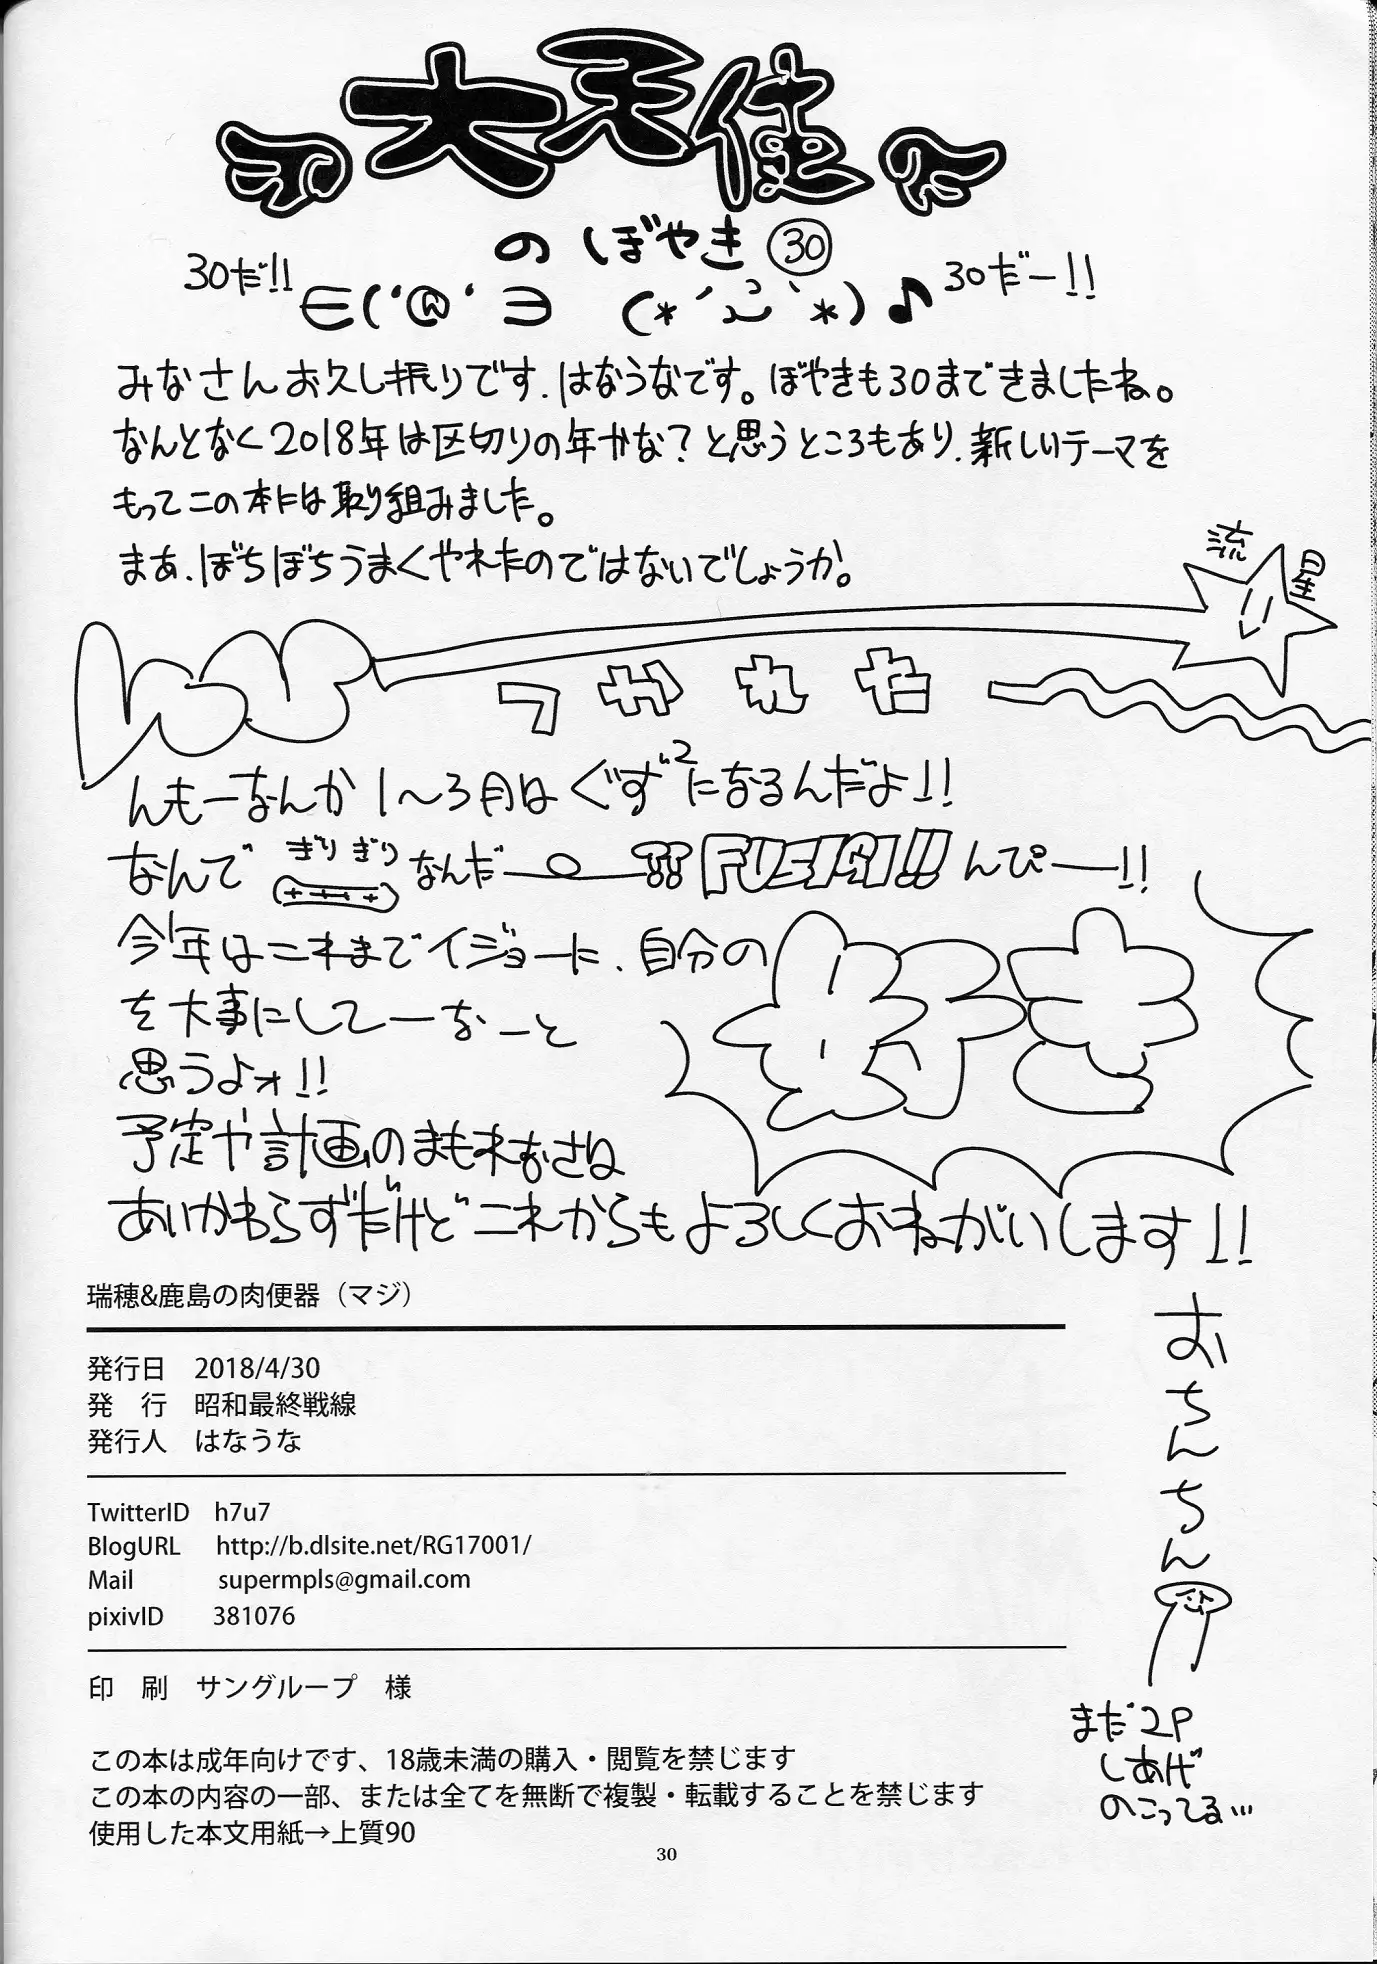 大天使
のぼやき㉚
30だ!! ∈(‘@‘∋ (*´ω`*)♪ 30だー!!
みなさんお久し振りです、はなうなです。ぼやきも30まできましたね。
なんとなく2018年は区切りの年かな?と思うところもあり、新しいテーマを
もってこの本には取り組みました。
まあ、ぼちぼちうまくやれたのではないでしょうか。
流星
つかれた
んもーなんか1〜3月はぐずずになるんだよ!!
なんでぎりぎりなんだー!!FUSIGI!!んぴー!!
今年はこれまでイジョーに、自分の
好き
を大事にしてーなーと
思うよォ!!
予定や計画の
あいかわらずだけどこれからもよろしくおねがいします!!
瑞穂&鹿島の肉便器（マジ）
発行日 2018/4/30
発 行 昭和最終戦線
発行人 はなうな
TwitterID h7u7
BlogURL http://b.dlsite.net/RG17001/
Mail supermpls@gmail.com
pixivID 381076
印 刷 サングループ 様
この本は成年向けです、18歳未満の購入・閲覧を禁じます
この本の内容の一部、または全てを無断で複製・転載することを禁じます
使用した本文用紙→上質90
おちんちん
まだ2P
しあげ
のこってる…
30